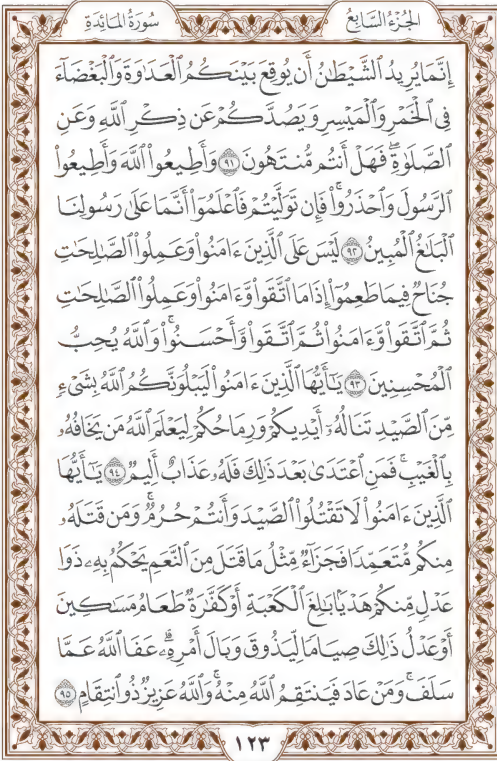 الجُزْءُ السَّابِعُ
سُورَةُ المَائِدَةِ
إِنَّمَا يُرِيدُ ٱلشَّيْطَٰنُ أَن يُوقِعَ بَيْنَكُمُ ٱلْعَدَٰوَةَ وَٱلْبَغْضَآءَ
فِي ٱلْخَمْرِ وَٱلْمَيْسِرِ وَيَصُدَّكُمْ عَن ذِكْرِ ٱللَّهِ وَعَنِ
ٱلصَّلَوٰةِۖ فَهَلْ أَنتُم مُّنتَهُونَ ٩١ وَأَطِيعُوا۟ ٱللَّهَ وَأَطِيعُوا۟
ٱلرَّسُولَ وَٱحْذَرُوا۟ۚ فَإِن تَوَلَّيْتُمْ فَٱعْلَمُوٓا۟ أَنَّمَا عَلَىٰ رَسُولِنَا
ٱلْبَلَٰغُ ٱلْمُبِينُ ٩٢ لَيْسَ عَلَى ٱلَّذِينَ ءَامَنُوا۟ وَعَمِلُوا۟ ٱلصَّٰلِحَٰتِ
جُنَاحٌ فِيمَا طَعِمُوٓا۟ إِذَا مَا ٱتَّقَوا۟ وَّءَامَنُوا۟ وَعَمِلُوا۟ ٱلصَّٰلِحَٰتِ
ثُمَّ ٱتَّقَوا۟ وَّءَامَنُوا۟ ثُمَّ ٱتَّقَوا۟ وَّأَحْسَنُوا۟ۚ وَٱللَّهُ يُحِبُّ
ٱلْمُحْسِنِينَ ٩٣ يَٰٓأَيُّهَا ٱلَّذِينَ ءَامَنُوا۟ لَيَبْلُوَنَّكُمُ ٱللَّهُ بِشَىْءٍ
مِّنَ ٱلصَّيْدِ تَنَالُهُۥٓ أَيْدِيكُمْ وَرِمَاحُكُمْ لِيَعْلَمَ ٱللَّهُ مَن يَخَافُهُۥ
بِٱلْغَيْبِۚ فَمَنِ ٱعْتَدَىٰ بَعْدَ ذَٰلِكَ فَلَهُۥ عَذَابٌ أَلِيمٌ ٩٤ يَٰٓأَيُّهَا
ٱلَّذِينَ ءَامَنُوا۟ لَا تَقْتُلُوا۟ ٱلصَّيْدَ وَأَنتُمْ حُرُمٌۚ وَمَن قَتَلَهُۥ
مِنكُم مُّتَعَمِّدًا فَجَزَآءٌ مِّثْلُ مَا قَتَلَ مِنَ ٱلنَّعَمِ يَحْكُمُ بِهِۦ ذَوَا
عَدْلٍ مِّنكُمْ هَدْيًۢا بَٰلِغَ ٱلْكَعْبَةِ أَوْ كَفَّٰرَةٌ طَعَامُ مَسَٰكِينَ
أَوْ عَدْلُ ذَٰلِكَ صِيَامًا لِّيَذُوقَ وَبَالَ أَمْرِهِۦۗ عَفَا ٱللَّهُ عَمَّا
سَلَفَۚ وَمَنْ عَادَ فَيَنتَقِمُ ٱللَّهُ مِنْهُۗ وَٱللَّهُ عَزِيزٌ ذُو ٱنتِقَامٍ ٩٥
١٢٣